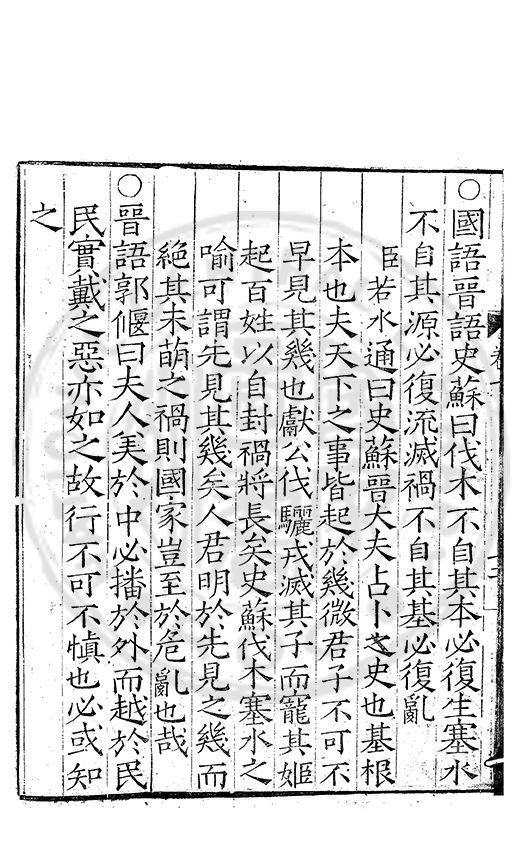 ○國語晉語史蘇曰伐木不自其本必復生塞水
不自其源必復流滅禍不自其基必復亂
臣若水通曰史蘇晉大夫占卜之史也基根
本也夫天下之事皆起於幾微君子不可不
早見其幾也獻公伐驪戎滅其子而寵其姬
起百姓以自封禍將長矣史蘇伐木塞水之
喻可謂先見其幾矣人君明於先見之幾而
絕其未萌之禍則國家豈至於危亂也哉
○晉語郭偃曰夫人美於中必播於外而越於民
民實戴之惡亦如之故行不可不慎也必或知
之